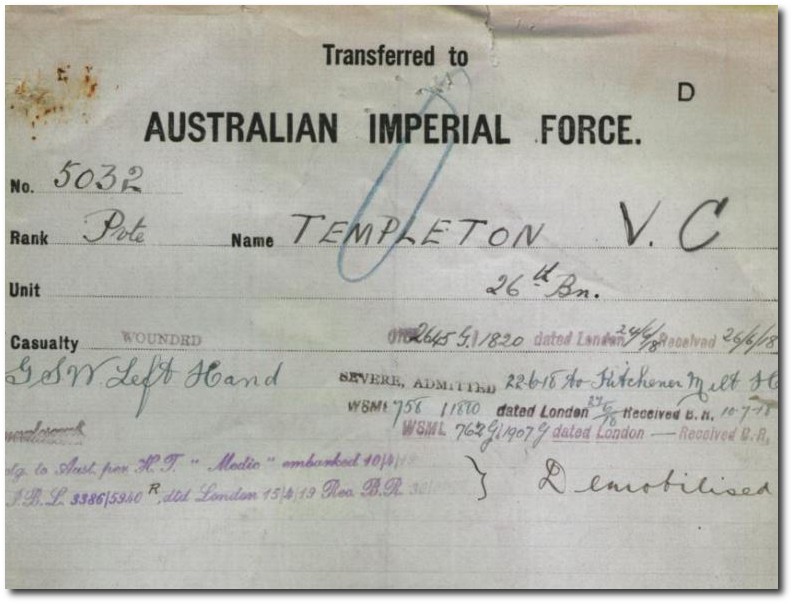 Transferred to
D
AUSTRALIAN IMPERIAL FORCE.
No. 5032
Rank Pvte Name TEMPLETON V. C
Unit 26th Bn.
Casualty WOUNDED 2645 G. 1820 dated London 24/6/18 Received 26/6/18
G S W Left Hand SEVERE, ADMITTED 22.6.18 to Kitchener Milt H
WSML 756 dated London 27/6/18 Received B.R. 10-7-18
WSML 762 G 1907 G dated London — Received B.R,
to Aust. per H.T. " Medic " embarked 10/4/
3386/5940 R, dtd London 15/4/19 Rec B.R. } Demobilised